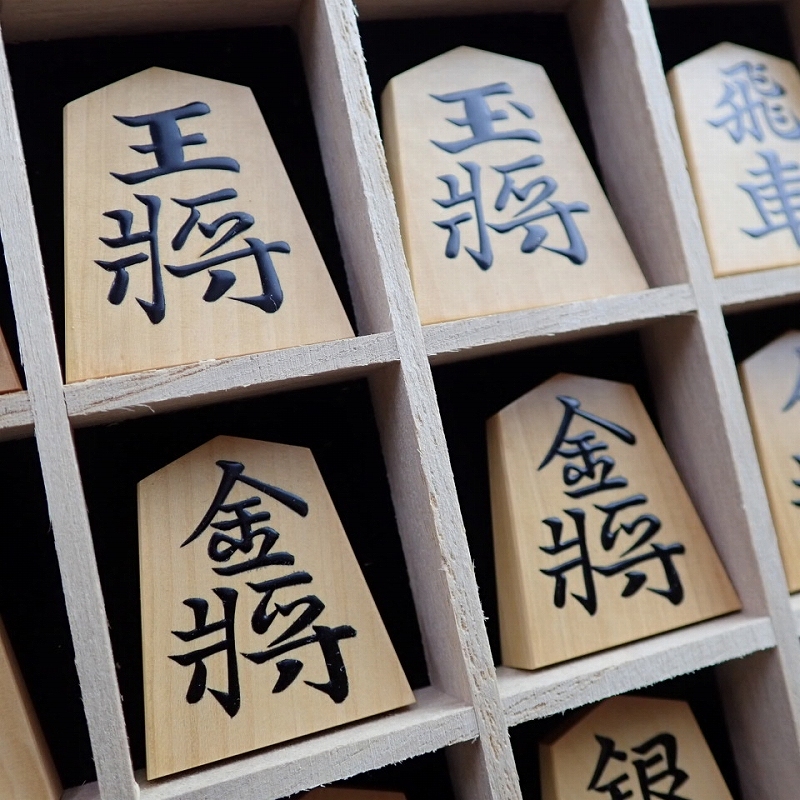 王
將
玉
將
飛
車
金
將
金
將
銀